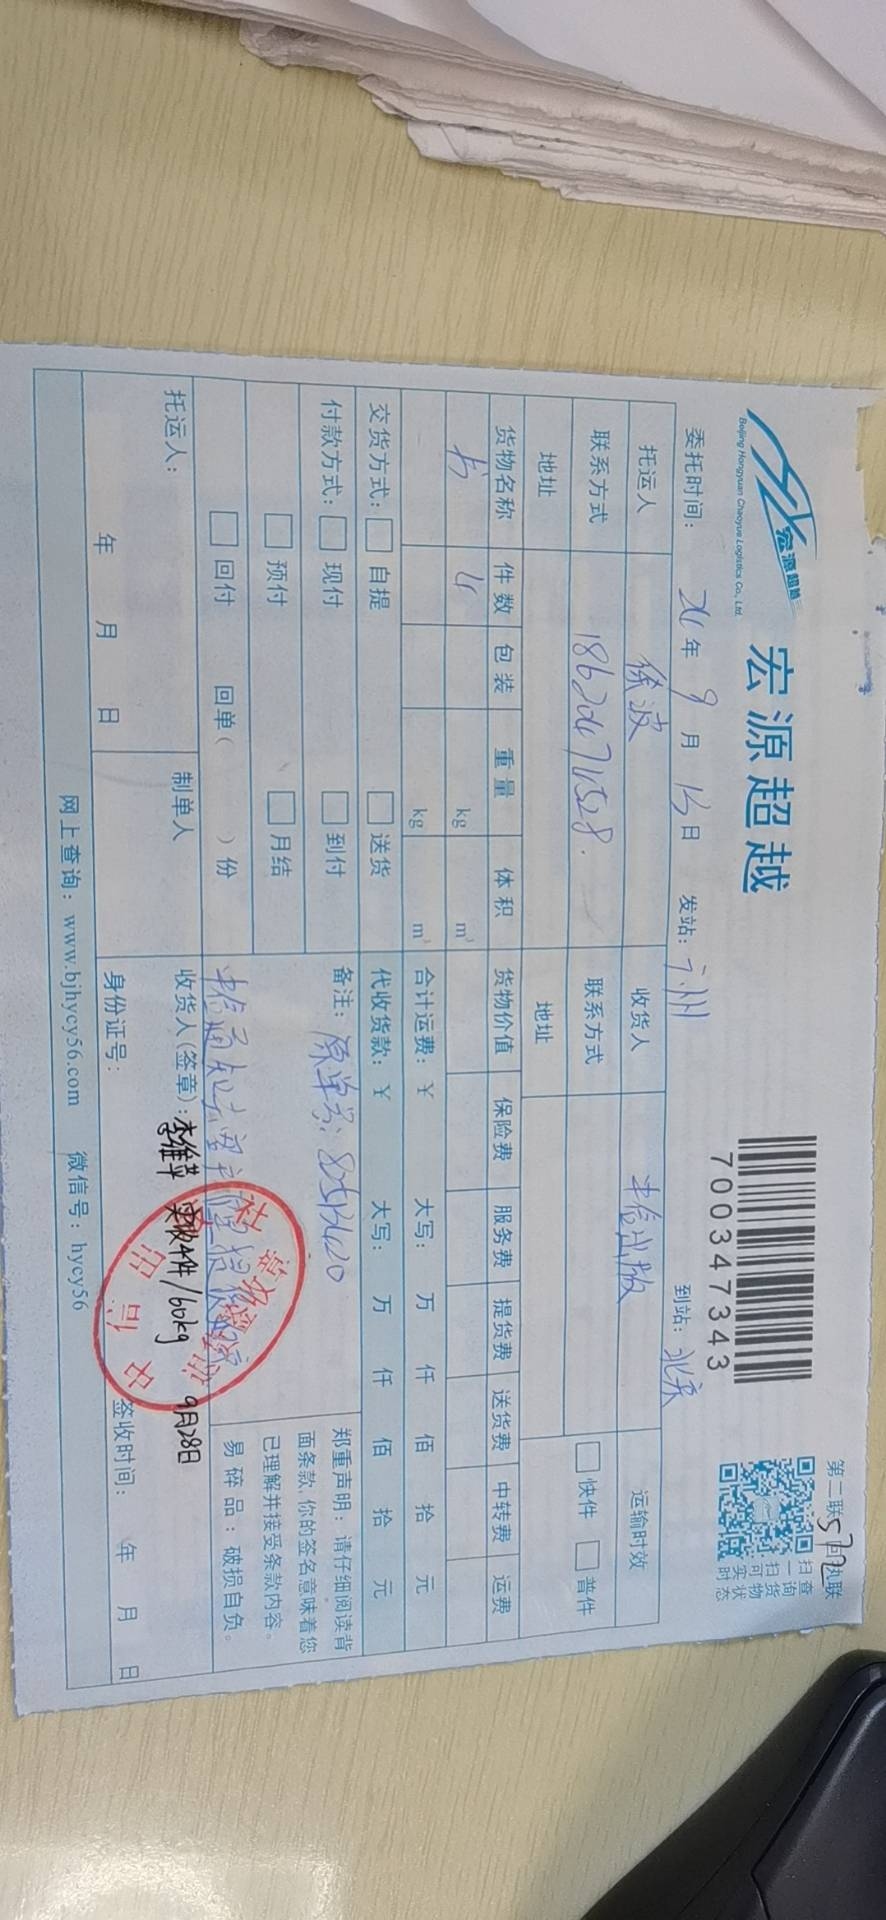 宏源超越
Beijing Hongyuan Chaoyue Logistics Co., Ltd.
宏源超越
700347343
第二联 回执联
扫一扫 查询货物实时状态
委托时间： 年 9 月 日 发站：广州 到站：北京
托运人 徐波 收货人 中信出版 运输时效
联系方式 联系方式 快件 普件
地址 地址
货物名称 件数 包装 重量 体积 货物价值 保险费 服务费 提货费 送货费 中转费 运费
书 4 kg m³
kg m³ 合计运费：¥ 大写： 万 仟 佰 拾 元
交货方式： 自提 送货 代收货款：¥ 大写： 万 仟 佰 拾 元
付款方式： 现付 到付 备注：原单号：
预付 月结
回付 回单（ ）份
郑重声明：请仔细阅读背
面条款，你的签名意味着您
已理解并接受条款内容。
易碎品：破损自负。
托运人： 制单人 收货人（签章）：李维苹 实收4件/66kg 9月28日
年 月 日 身份证号： 签收时间： 年 月 日
网上查询：www.bjhycy56.com 微信号：hycy56